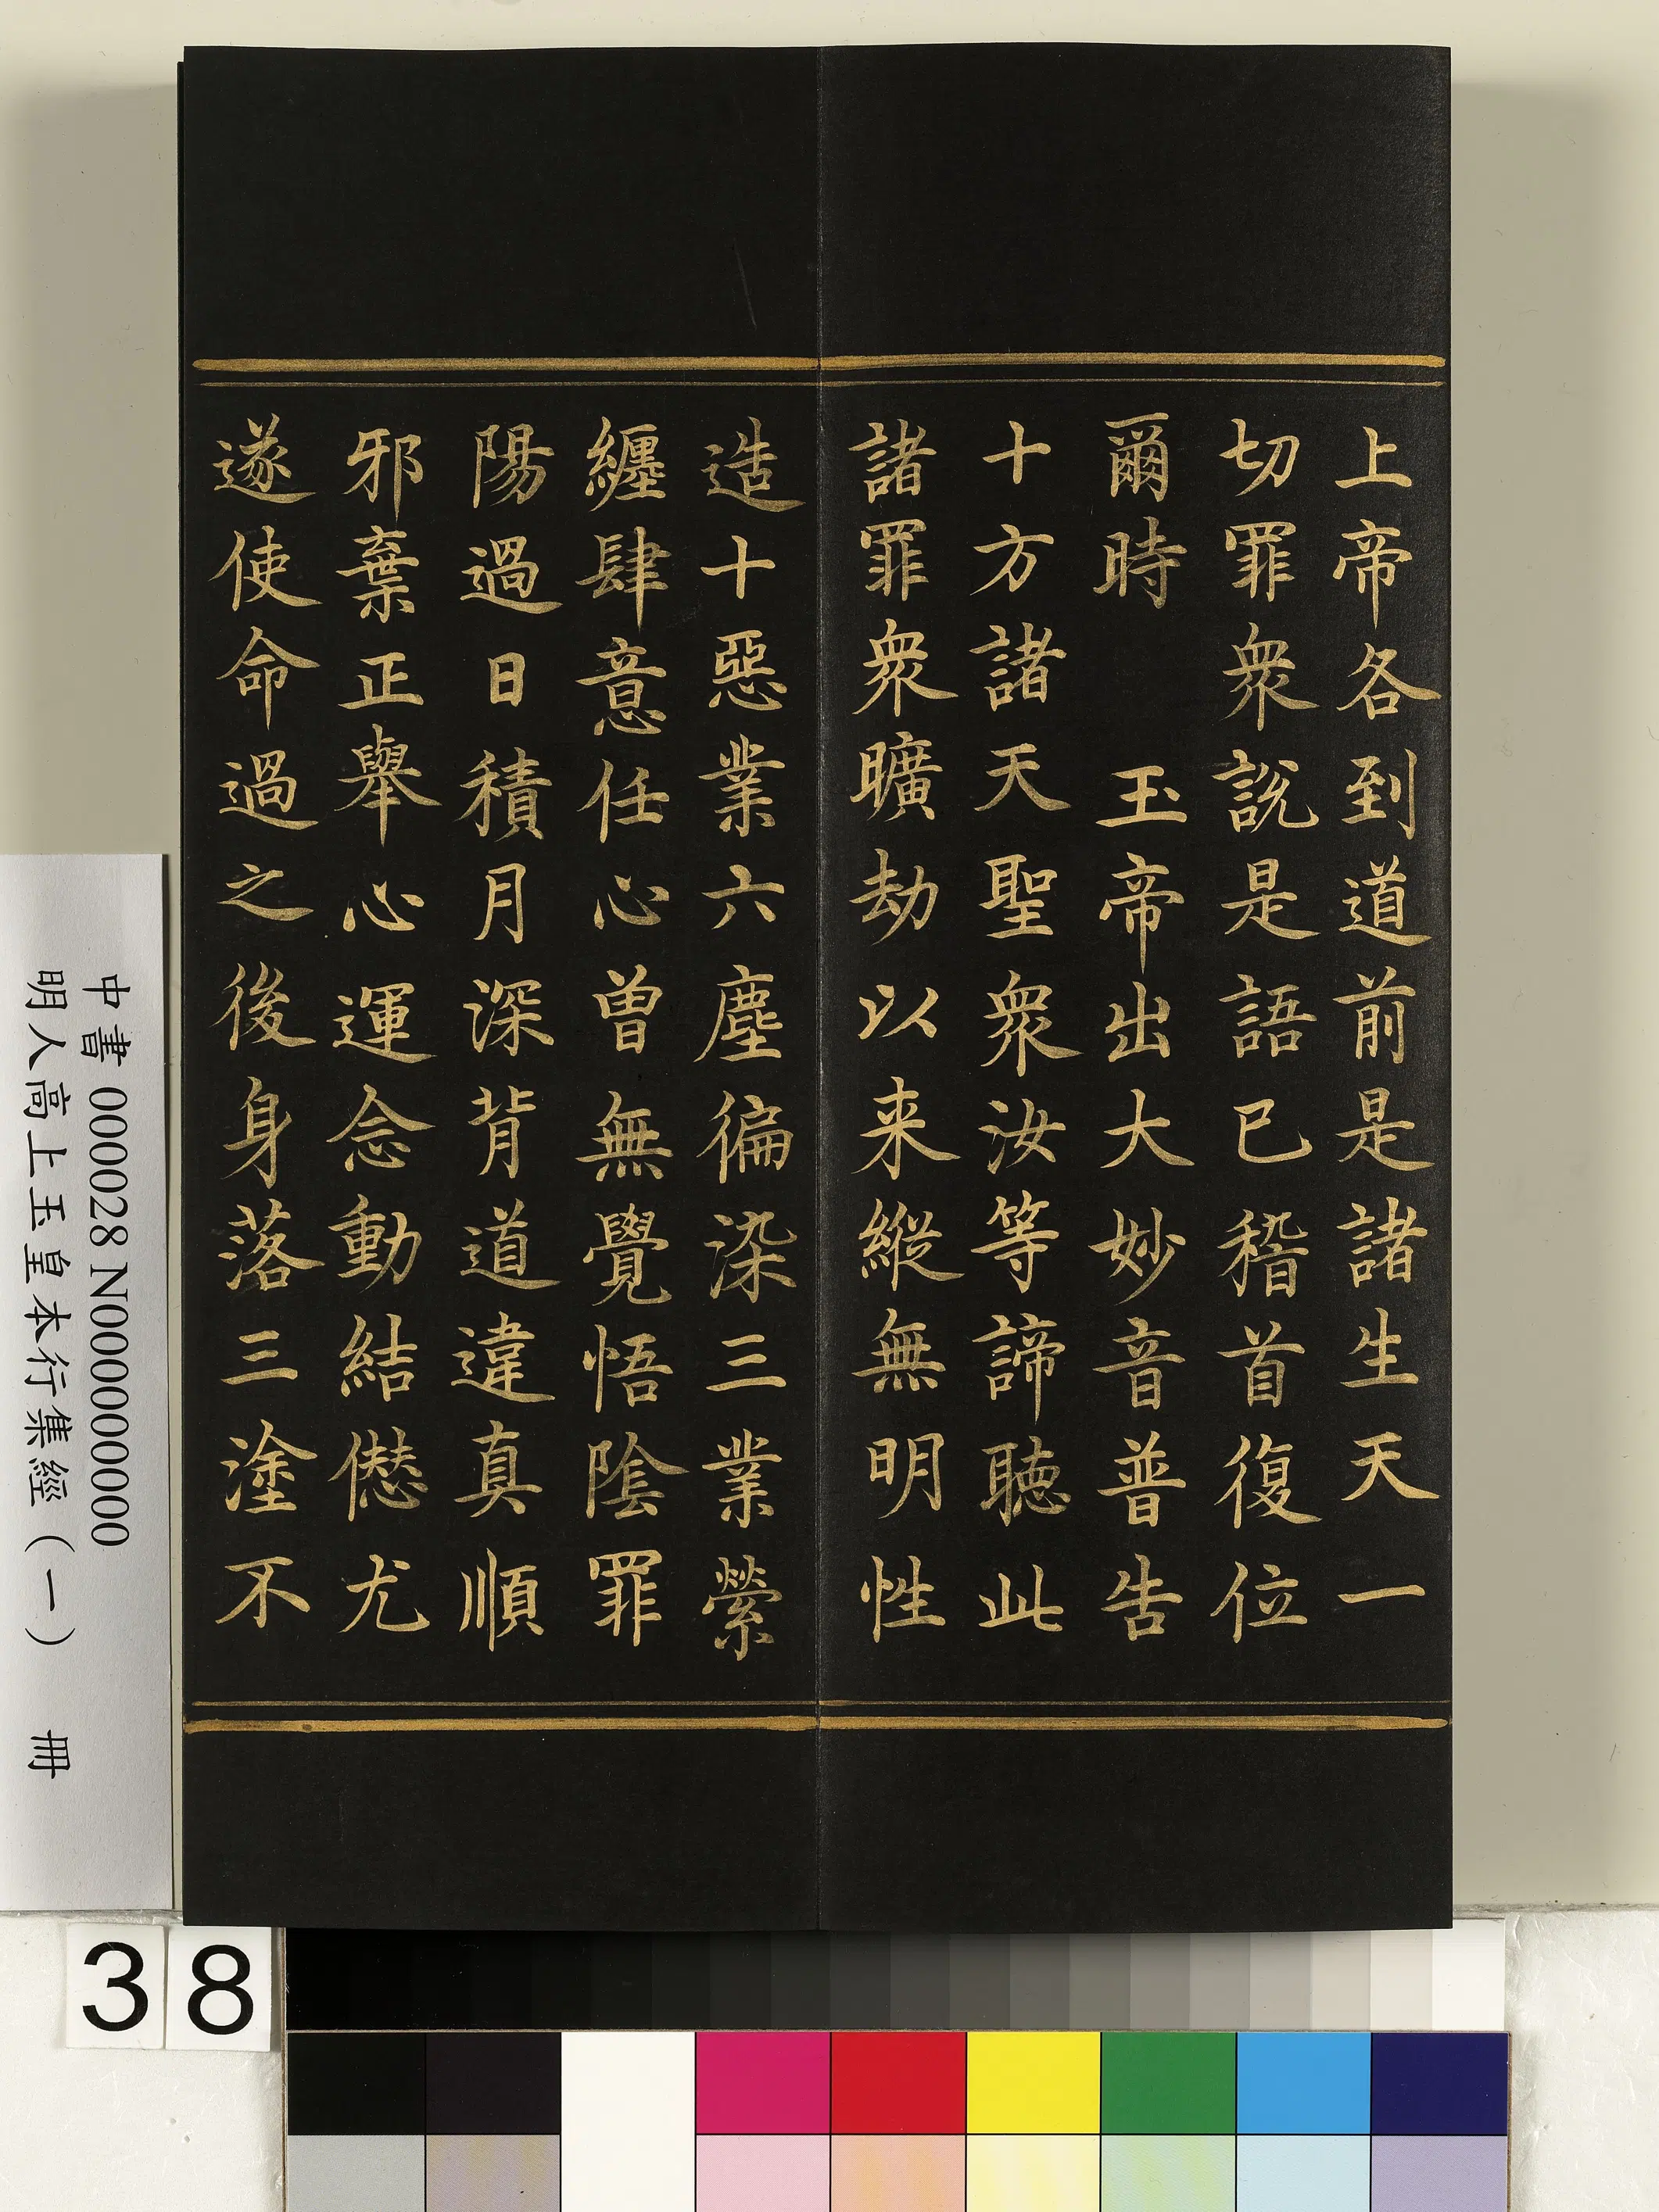 上帝各到道前是諸生天一
切罪衆說是語已稽首復位
爾時　玉帝出大妙音普告
十方諸天聖衆汝等諦聽此
諸罪衆曠劫以来縱無明性
造十惡業六塵徧染三業縈
纏肆意任心曾無覺悟陰罪
陽過日積月深背道違真順
邪棄正舉心運念動結僁尤
遂使命過之後身落三塗不
中書 000028 N000000000
明人高上玉皇本行集經（一） 冊
38